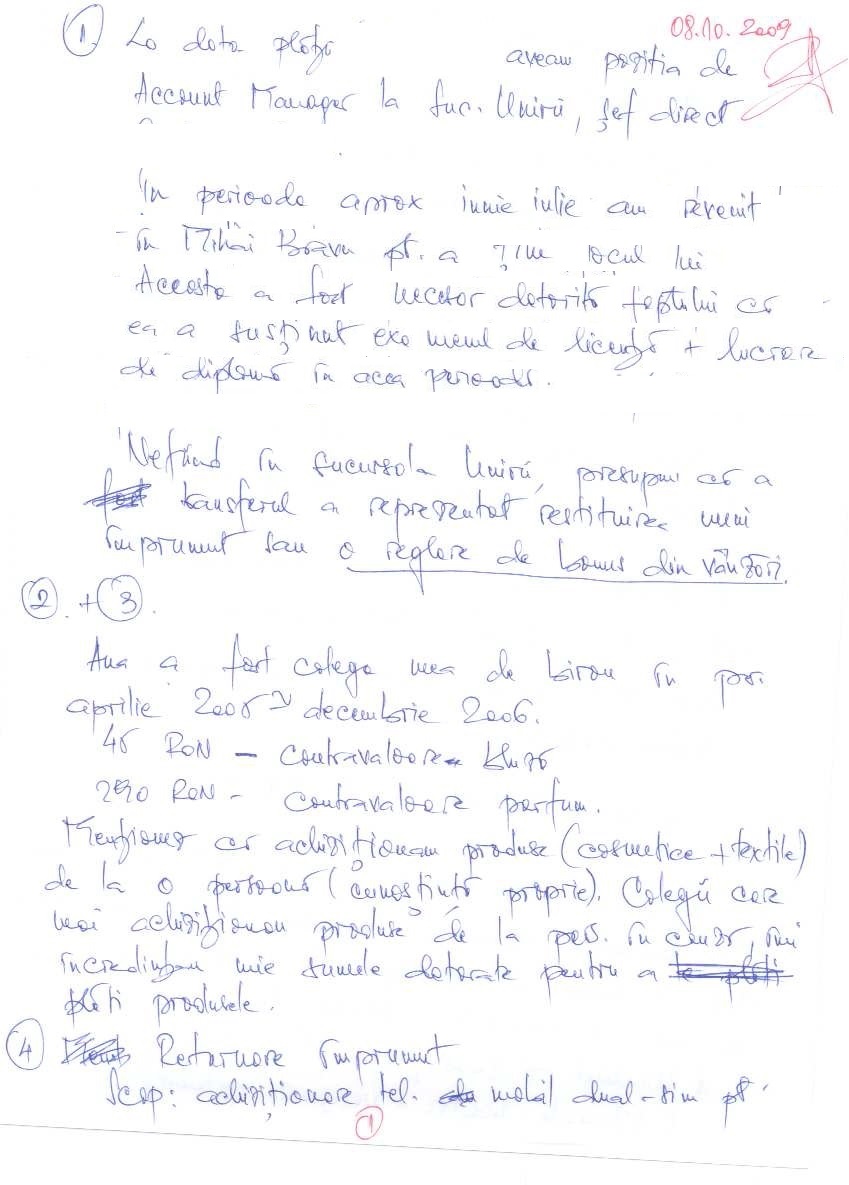 08.10.2009
① La data plății aveam poziția de
Account Manager la suc. Unirii, șef direct
În perioada aprox iunie iulie am revenit
în Mihai Bravu pt. a ține locul lui
Aceasta a fost necesar datorită faptului că
ea a susținut examenul de licență + lucrare
de diplomă în acea perioadă.
Nefiind în sucursala Unirii, presupun că a
transferul a reprezentat restituirea unui
împrumut sau o reglare de bonus din vânzări.
② + ③.
Ana a fost colega mea de birou în per.
aprilie 2006 ~ decembrie 2006.
45 RON – contravaloarea bluză
290 RON – contravaloare parfum.
Menționez că achiziționam produse (cosmetice + textile)
de la o persoană (cunoștință proprie). Colegii care
mai achiziționau produse de la pers. în cauză, îmi
încredințau mie sumele datorate pentru a le plăti
plăti produsele.
④ Returnare împrumut
Scop: achiziționare tel. mobil dual-sim pt.
①